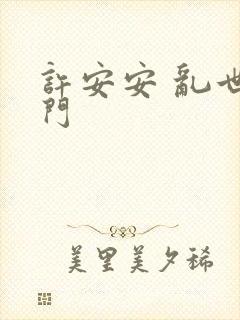 許安安 亂世
門
美里美夕稀